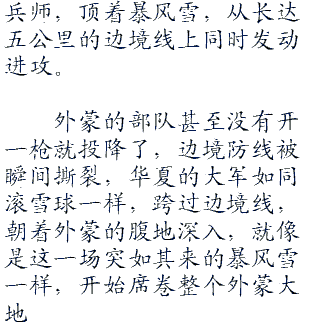 兵师，顶着暴风雪，从长达
五公里的边境线上同时发动
进攻。
外蒙的部队甚至没有开
一枪就投降了，边境防线被
瞬间撕裂，华夏的大军如同
滚雪球一样，跨过边境线，
朝着外蒙的腹地深入，就像
是这一场突如其来的暴风雪
一样，开始席卷整个外蒙大
地